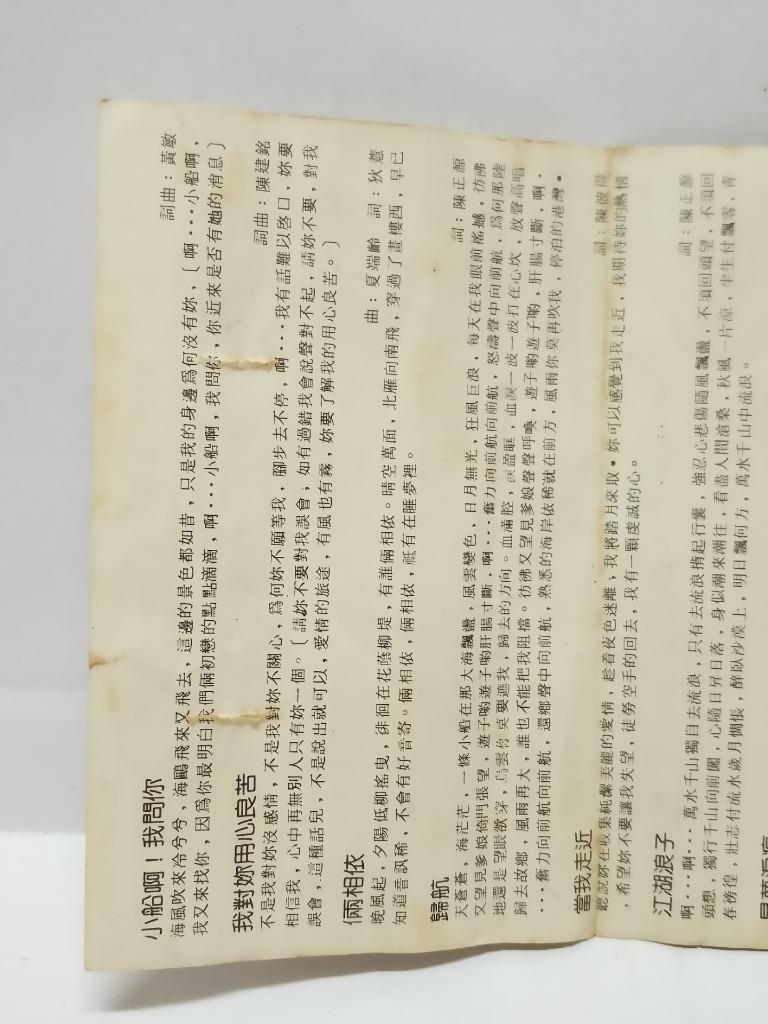 小船啊！我問你
詞曲：黃敏
海風吹來冷兮兮，海鷗飛來又飛去，這邊的景色都如昔，只是我的身邊爲何沒有妳，〔啊•••小船啊，
我又來找你，因爲你最明白我們倆初戀的點點滴滴，啊•••小船啊，我問你，你近來是否有她的消息〕
我對妳用心良苦
詞曲：陳建銘
不是我對妳沒感情，不是我對妳不關心，爲何妳不願等我，腳步去不停，啊•••我有話難以啓口、妳要
相信我，心中再無別人只有妳一個。〔請妳不要對我誤會，如有過錯我會說聲對不起，請妳不要，對我
誤會，這種話兒，不是說出就可以，愛情的旅途，有風也有霧，妳要了解我的用心良苦。〕
倆相依
曲：夏端齡　詞：狄薏
晚風起，夕陽低柳搖曳，徘徊在花蔭柳堤，有誰倆相依。晴空萬面，北雁向南飛，穿過了畫樓西，早已
知道音訊稀，不會有好音寄。倆相依，倆相依，祗有在睡夢裡。
歸航
詞：陳正源
天蒼蒼，海茫茫，一條小船在那大海飄盪，風雲變色，日月無光，狂風巨浪，每天在我眼前搖撼，彷彿
又望見爹娘倚門張望，遊子喲遊子喲肝腸寸斷，啊•••奮力向前航向前航，怒濤聲中向前航，爲何那陸
地還是望眼欲穿，烏雲你莫要遮我，歸去的方向。血滿腔，淚盈眶，血淚一波一波打在心坎，放聲高唱
歸去故鄉，風雨再大，誰也不能把我阻擋。彷彿又望見爹娘聲聲呼喚，遊子喲遊子喲，肝腸寸斷，啊•
•••奮力向前航向前航，還鄉聲中向前航，熟悉的海岸依稀就在前方，風雨你莫再吹我，停泊的港灣•
當我走近
詞：陳彼得
聽說妳在收集純潔美麗的愛情，趁着夜色迷離，我將踏月來取•妳可以感覺到我走近，我期待妳的熱情
，希望妳不要讓我失望，徒勞空手的回去，我有一顆虔誠的心。
江湖浪子
詞：陳正源
啊•••啊•••萬水千山獨自去流浪，只有去流浪揹起行囊，強忍心悲傷隨風飄盪，不須回頭望，不須回
頭想，獨行千山向前闖，心隨日昇日落，身似潮來潮往，看盡人間滄桑，秋風一片凉，半生付飄零，青
春徬徨，壯志付流水歲月惆悵，醉臥沙漠上，明日飄何方，萬水千山中流浪。